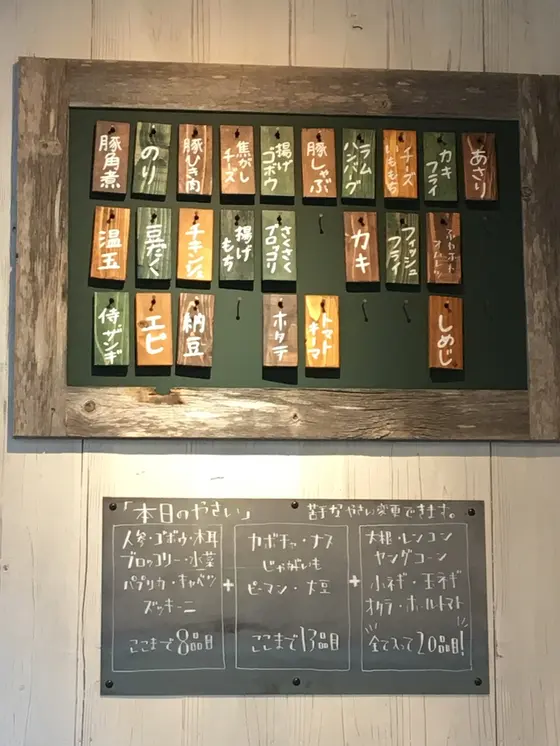 豚角煮
のり
豚ひき肉
焦がしチーズ
揚げゴボウ
豚しゃぶ
ラムハンバーグ
チーズいももち
カキフライ
あさり
温玉
チキンレッグ
揚げもち
さくさくブロッコリー
カキ
フィッシュフライ
侍ザンギ
エビ
納豆
ホタテ
トマトキーマ
しめじ
「本日のやさい」
苦手なやさい変更できます。
人参・ゴボウ・木耳
ブロッコリー・水菜
パプリカ・キャベツ
ズッキーニ
ここまで8品目
+
カボチャ・ナス
じゃがいも
ピーマン・大豆
ここまで13品目
+
大根・レンコン
ヤングコーン
小ネギ・玉ネギ
オクラ・ホールトマト
全て入って20品目!